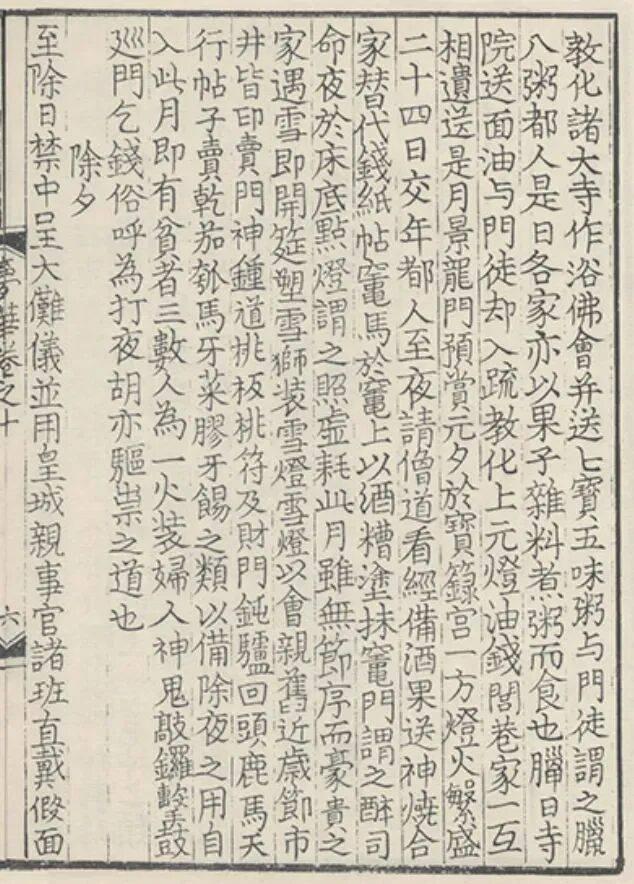 教化諸大寺作浴佛會并送七寳五味粥与門徒謂之臘
八粥都人是日各家亦以果子雜料煮粥而食也臈日寺
院送面油与門徒却入疏教化上元燈油錢閭巷家家互
相遺送是月景龍門預賞元夕於寳籙宫一方燈火繁盛
二十四日交年都人至夜請僧道看經備酒果送神燒合
家替代錢紙帖竃馬於竃上以酒糟塗抹竃門謂之醉司
命夜於床底點燈謂之照虚耗此月雖無節序而豪貴之
家遇雪即開筵塑雪獅装雪燈雪以會親舊近歳節市
井皆印賣門神鍾道桃板桃符及財門鈍驢回頭鹿馬天
行帖子賣乾茄瓠馬牙菜膠牙餳之類以備除夜之用自
入此月即有貧者三數人為一火装婦人神鬼敲鑼擊鼓
廵門乞錢俗呼為打夜胡亦驅祟之道也
除夕
至除日禁中呈大儺儀並用皇城親事官諸班直戴假面
夢華卷之十
六